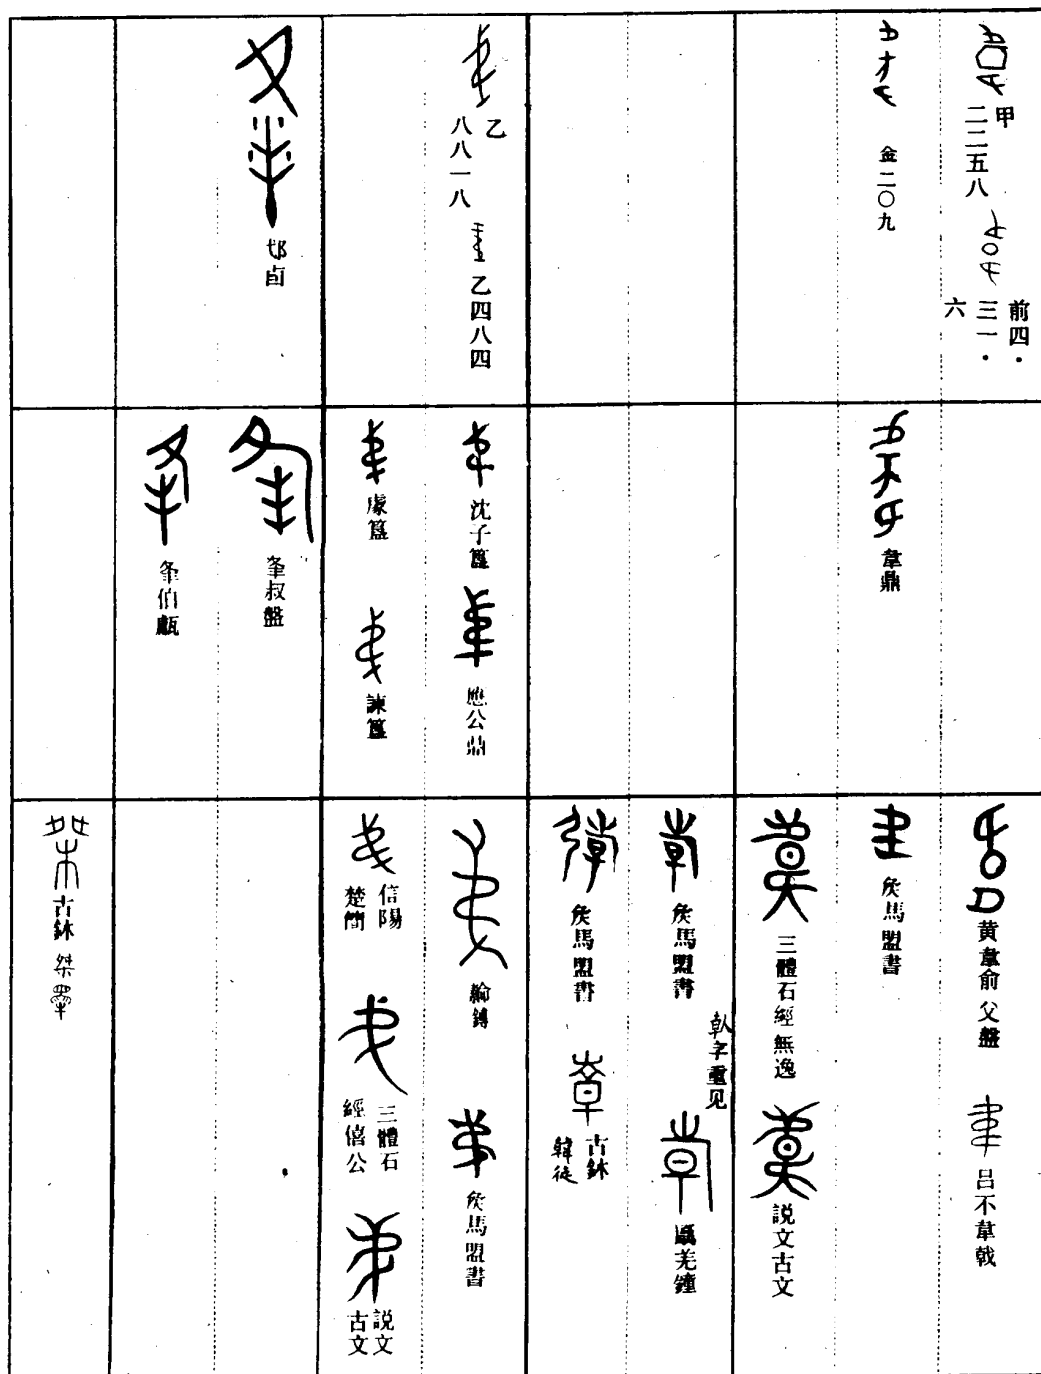 甲二二五八
前四·三一·六
金二〇九
乙八八一八
乙四八四
邙卣
韋鼎
沈子簋
應公鼎
㝬簋
諫簋
夆叔盤
夆伯甗
黄韋俞父盤
吕不韋戟
矦馬盟書
三體石經無逸
説文古文
矦馬盟書
倝字重见
羌鐘
矦馬盟書
古鉥
韓徒
綸鎛
矦馬盟書
信陽楚簡
三體石經僖公
説文古文
古鉥
桀